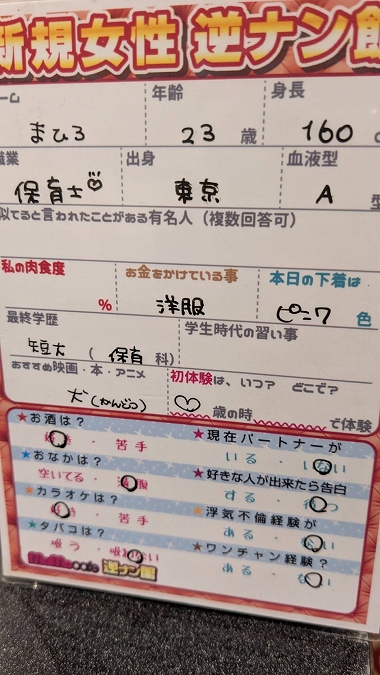 新規女性 逆ナン館
ーム 年齢 身長
まひろ 23 歳 160 c
職業 出身 血液型
保育士 東京 A 型
似てると言われたことがある有名人(複数回答可)
私の肉食度 お金をかけている事 本日の下着は
% 洋服 ピンク 色
最終学歴 学生時代の習い事
短大 ( 保育 科)
おすすめ映画・本・アニメ 初体験は、いつ? どこで?
犬(かんどう) ♡ 歳の時 で体験
★お酒は? ★現在パートナーが
好き・苦手 いる・いない
★おなかは? ★好きな人が出来たら告白
空いてる・満腹 する・待つ
★カラオケは? ★浮気不倫経験が
好き・苦手 ある・ない
★タバコは? ★ワンチャン経験?
吸う・吸わない ある・ない
cafe 逆ナン館